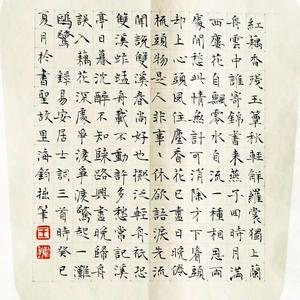 紅藕香殘玉簟秋輕解羅裳獨上蘭
舟雲中誰寄錦書來燕子回時月滿
西廔花自飄零水自流一種相思兩
處閒愁此情無計可消除才下眉頭
却上心頭風住塵香花已盡日晚倦
梳頭物是人非事〻休欲語淚先流
聞說雙溪春尚好也擬泛輕舟祇恐
雙溪舴艋舟載不動許多愁常記溪
亭日暮沈醉不知歸路興盡晚歸舟
誤入藕花深處爭渡爭渡驚起一灘
鷗鷺 錄易安居士詞三首時癸巳
夏月於書聖故里海鈞拙筆